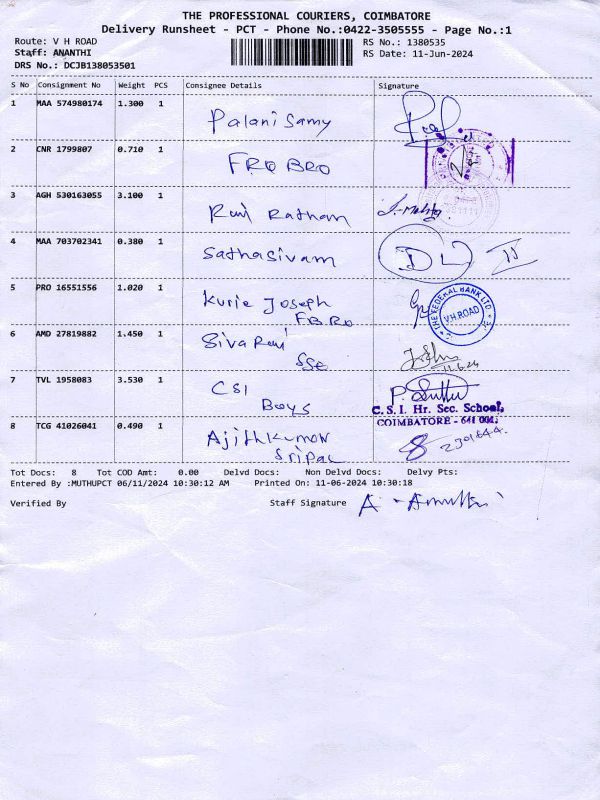 THE PROFESSIONAL COURIERS, COIMBATORE
Delivery Runsheet - PCT - Phone No.:0422-3505555 - Page No.:1
Route: V H ROAD
RS No.: 1380535
Staff: ANANTHI
RS Date: 11-Jun-2024
DRS No.: DCJB138053501
S No Consignment No Weight PCS Consignee Details Signature
1 MAA 574980174 1.300 1 Palani Samy
2 CNR 1799807 0.710 1 FRO BRO
3 AGH 530163055 3.100 1 Ravi Ratham
4 MAA 703702341 0.380 1 Sathasivam
5 PRO 16551556 1.020 1 Kurie Joseph
FBRO
THE FEDERAL BANK LTD.
V.H ROAD
6 AMD 27819882 1.450 1 Siva Ravi
SSe
7 TVL 1958083 3.530 1 CSI
Boys
C.S.I. Hr. Sec. School,
COIMBATORE - 641 001.
8 TCG 41026041 0.490 1 Ajithkumar
Sripal
Tot Docs: 8 Tot COD Amt: 0.00 Delvd Docs: Non Delvd Docs: Delvy Pts:
Entered By :MUTHUPCT 06/11/2024 10:30:12 AM Printed On: 11-06-2024 10:30:18
Verified By Staff Signature